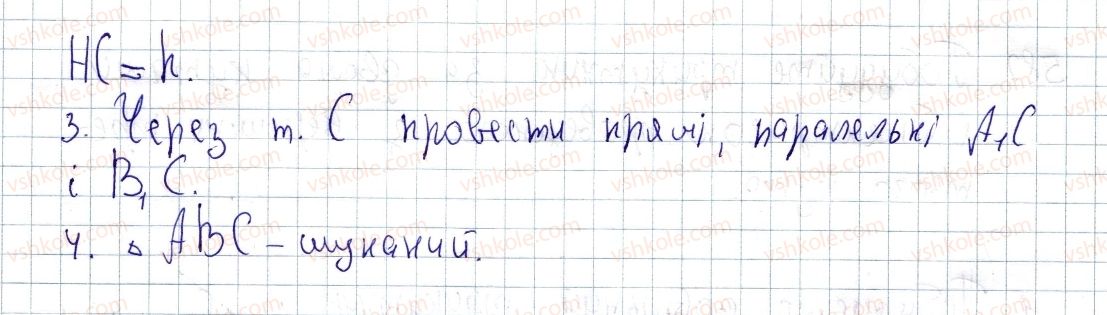 HC = h.
3. Через т. C провести прямі, паралельні A₁C
і B₁C.
4. △ ABC – шуканий.